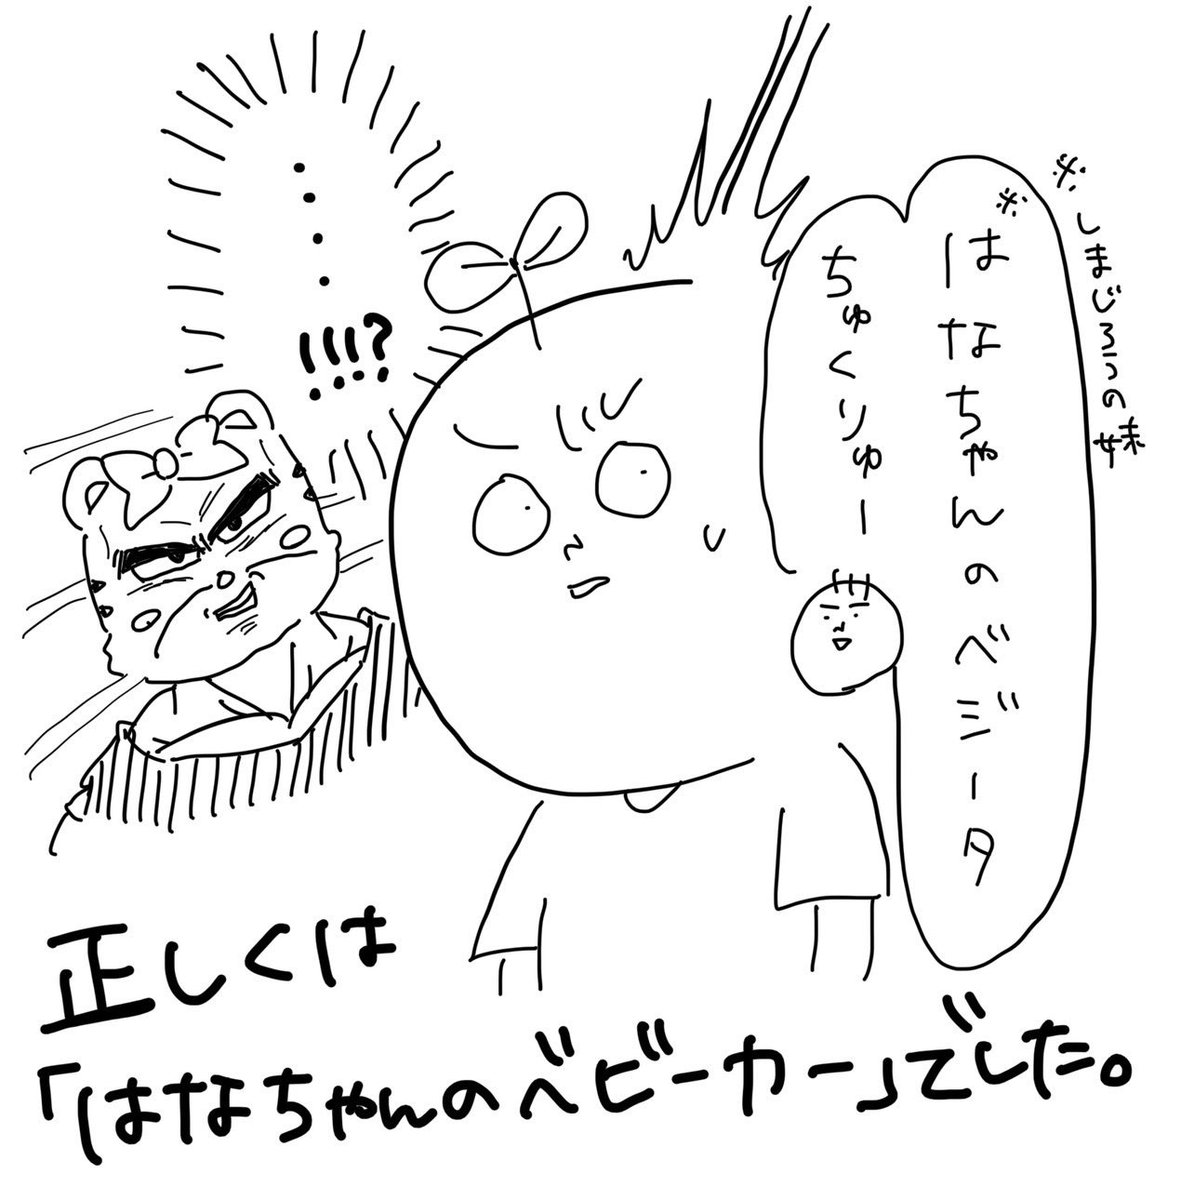 ※しまじろうの妹
※はなちゃんのベジータ
ちゅくりゅー
・・・・!!!?
正しくは
「はなちゃんのベビーカー」でした。